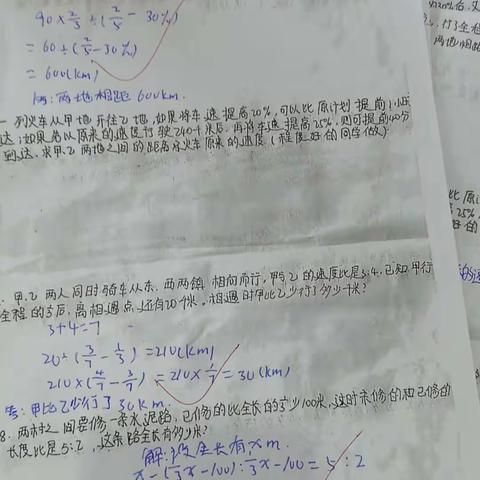 90×2/3÷(2/5-30%)
=60÷(2/5-30%)
=600(km)
答:两地相距600km.
一列火车从甲地开往乙地,如果将车速提高20%,可以比原计划提前1小时
达;如果先以原来的速度行驶240千米后,再将车速提高25%,则可提前40分
到达,求甲、乙两地之间的距离及火车原来的速度(程度好的同学做)
甲、乙两人同时骑车从东、西两镇相向而行,甲与乙的速度比是3:4,已知甲行
全程的1/3后,离相遇点还有20千米,相遇时甲比乙少行了多少千米?
3+4=7
20÷(3/7-1/3)=210(km)
210×(4/7-3/7)=210×1/7=30(km)
答:甲比乙少行了30km.
8.两村之间要修一条水泥路,已修的比全长的1/3少100米,这时未修的和已修的
长度比是5:2,这条路全长有多少米?
解:设全长有xm.
x-(1/3x-100):1/3x-100=5:2